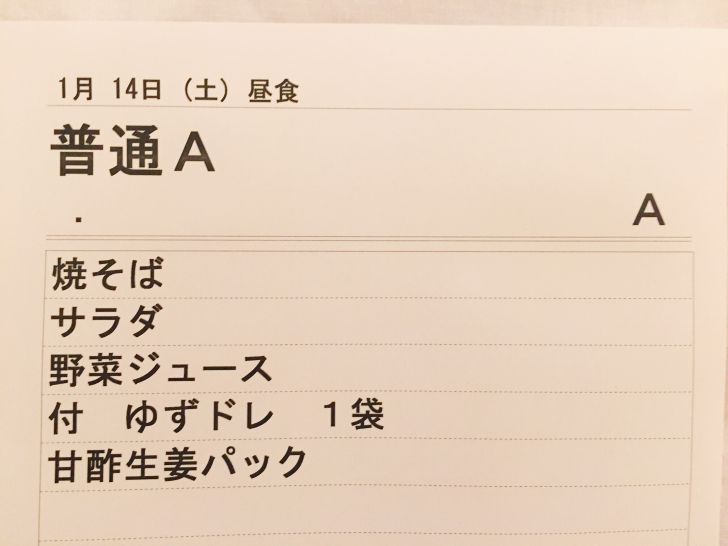 1月 14日 (土) 昼食
普通A
. A
焼そば
サラダ
野菜ジュース
付 ゆずドレ 1袋
甘酢生姜パック